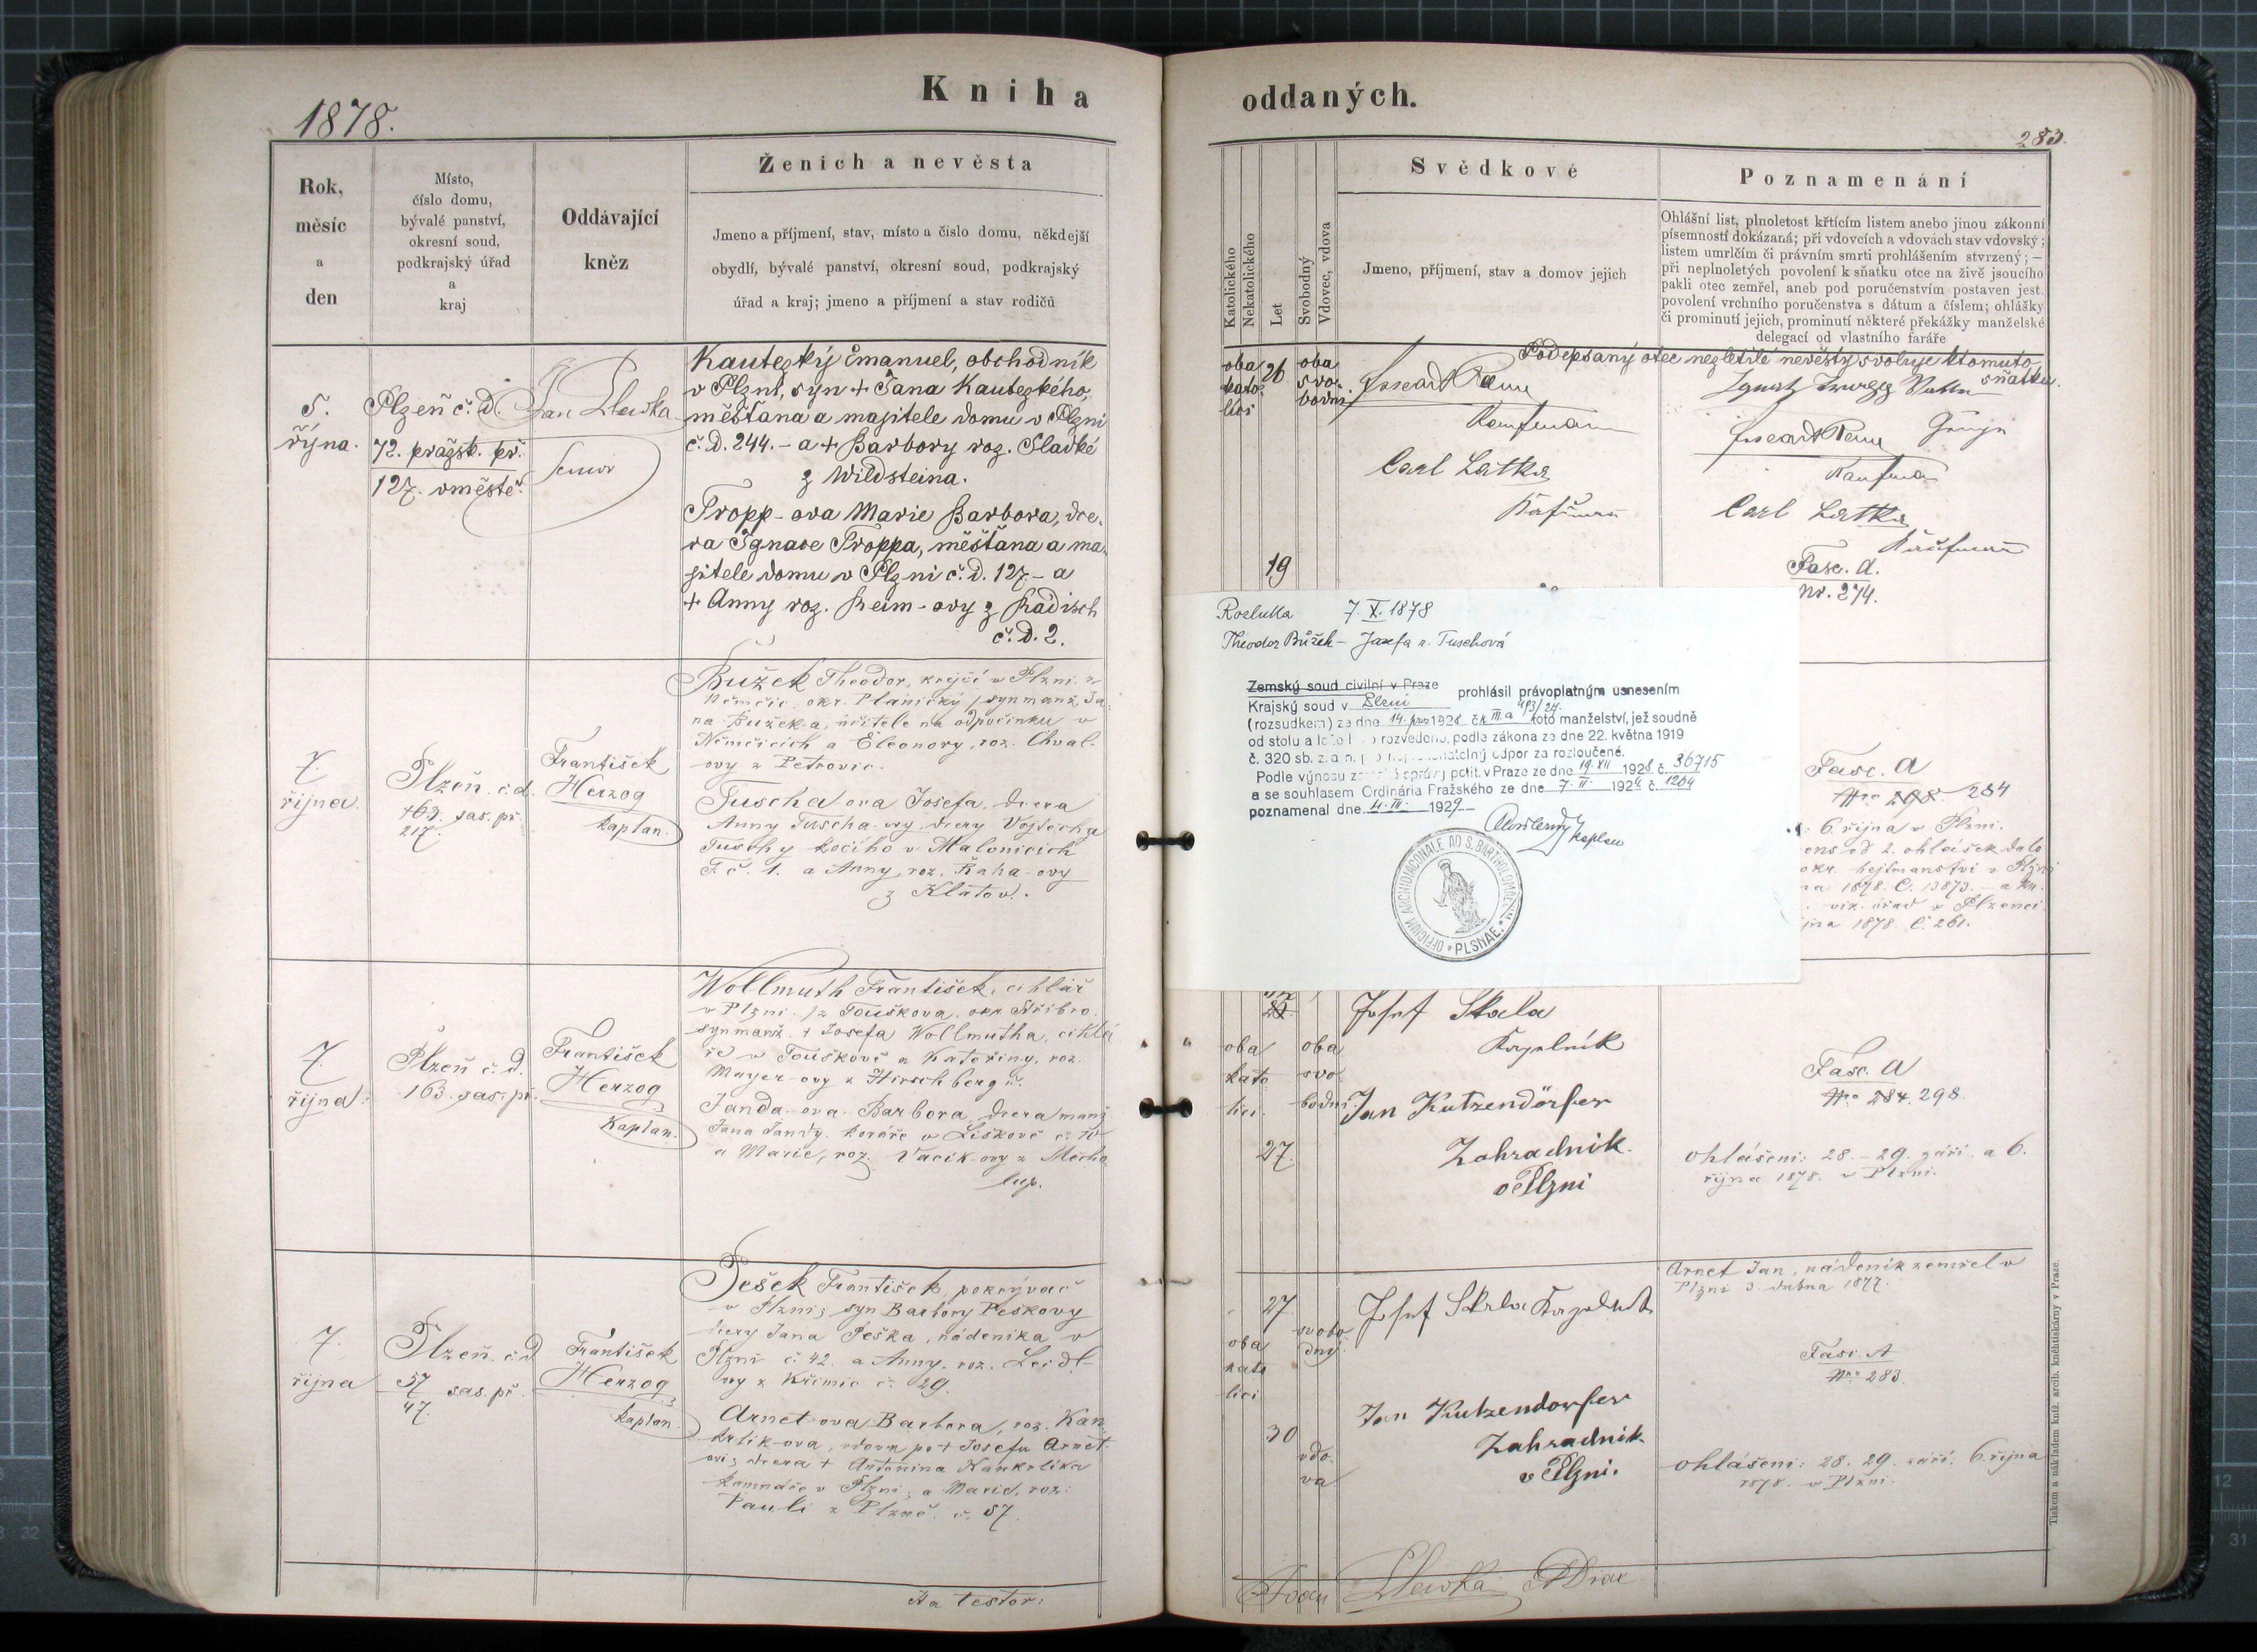 1878.
Kniha
Rok,
měsíc
a
den
Místo,
číslo domu,
bývalé panství,
okresní soud,
podkrajský úřad
a
kraj
Oddávající
kněz
Ženich a nevěsta
Jmeno a příjmení, stav, místo a číslo domu, někdejší
obydlí, bývalé panství, okresní soud, podkrajský
úřad a kraj; jmeno a příjmení a stav rodičů
5.
října.
Plzeň č. d.
72. pražsk. př.
127. v městě.
Jan
Senior
Kautezký Emanuel, obchodník
v Plzni, syn + Jana Kautezkého,
měšťana a majitele domu v Plzni
č. d. 244. - a + Barbory roz. Sladké
z Wildsteina.
Tropp-ova Marie Barbora, dce-
ra Ignace Troppa, měšťana a ma-
jitele domu v Plzni č. d. 127 - a
+ Anny roz. Heim-ovy z Hradisch
č. d. 2.
7.
října.
Plzeň č. d.
463. sas. př.
217.
František
Herzog
kaplan.
Bužek Theodor, krejčí v Plzni z
Němčic, okr. Plánický, syn manž. Ja-
na Bužek-a, učitele na odpočinku v
Němčicích a Eleonory, roz. Chval-
ovy z Petrovic.
Tuscha ova Josefa, dcera
Anny Tuscha-ovy, dcery Vojtěcha
Tuschy kočího v Malonicích
č. 1. a Anny, roz.
z Klatov.
7.
října.
Plzeň č. d.
163. sas. př.
František
Herzog
Kaplan.
Wollmuth František, cihlář
v Plzni z Touškova, okr. Stříbro,
syn manž. + Josefa Wollmutha, cihlá
ře v Touškově a Kateřiny, roz.
Mayer-ovy z Hirschbergu.
Janda-ova Barbora, dcera manž.
Jana Jandy, kováře v Liškově č.
a Marie, roz. Vacík-ovy z Měcho
lup.
7.
října
Plzeň č. d.
57 sas. př.
47.
František
Herzog
kaplan.
Pešek František, pokrývač
v Plzni; syn Barbory Peškovy
dcery Jana Peška, nádeníka v
Plzni č. 42. a Anny, roz. Leidl-
ovy z Křimic č. 29.
Arnet ova Barbora, roz. Kan
krlik-ova, vdova po + Josefu Arnet
ovi; dcera + Antonína Kankrlíka
v Plzni; a Marie, roz:
Pauli z Plzně č. 57.
Attestor:
oddaných.
283.
Katolického
Nekatolického
Let
Svobodný
Vdovec, vdova
Svědkové
Jmeno, příjmení, stav a domov jejich
Poznamenání
Ohlášní list, plnoletost křtícím listem anebo jinou zákonní
písemností dokázaná; při vdovcích a vdovách stav vdovský;
listem umrlčím či právním smrti prohlášením stvrzený; —
při neplnoletých povolení k sňatku otce na živě jsoucího
pakli otec zemřel, aneb pod poručenstvím postaven jest.
povolení vrchního poručenstva s dátum a číslem; ohlášky
či prominutí jejich, prominutí některé překážky manželské
delegací od vlastního faráře
oba
kato-
líci
26
oba
svo-
bodni
19
Kaufmann
Carl Latka
Kaufmann
Podepsaný otec nezletilé nevěsty svoluje k tomuto
sňatku.
Kaufmann
Carl Latka
Kaufmann
Fasc. A.
Nr. 274.
Rozluka 7. X. 1878
Theodor Bůžek – Josefa r. Tuschová
Zemský soud civilní v Praze
Krajský soud v Plzni prohlásil právoplatným usnesením
(rozsudkem) ze dne 14. 1928 č. k III.a 493/27. toto manželství, jež soudně
od stolu a lože bylo rozvedeno, podle zákona ze dne 22. května 1919
č. 320 sb. z. a n. pro nepřekonatelný odpor za rozloučené.
Podle výnosu zemské správy polit. v Praze ze dne 19. XII 1928 č. 36715
a se souhlasem Ordinária Pražského ze dne 7. II. 1929 č. 1264
poznamenal dne 4. III. 1929
kaplan
OFFICIUM ARCHIDIACONALE AD S. BARTHOLOMAEUM PLSNAE.
Fasc. A
Nro 298. 284
6. října v Plzni.
ens od 2. ohlášek dalo
okr. hejtmanství v Plzni
na 1878. Č. 13873. – a kn.
vik. úřad v Plzenci
jna 1878 Č. 261.
oba
kato
lici.
27.
oba
svo-
bodni
Josef Skala
Krupalník
Jan Kutzendörfer
Zahradník
v Plzni
Fasc. A
Nro 284. 298.
ohlášeni: 28. – 29. září a 6.
října 1878. v Plzni.
27.
oba
kato
lici
30
svobo
dný.
vdo-
va
Josef Skala
Jan Kutzendorfer
Zahradník
v Plzni.
Arnet Jan, nádeník zemřel v
Plzni 3. dubna 1877.
Fasc. A
Nro 283.
ohlášeni: 28. 29. září. 6. října
1878. v Plzni.
Tiskem a nákladem kníž. arcib. knihtiskárny v Praze.